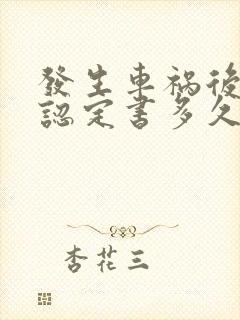 發生車禍後
認定書多久
杏花三